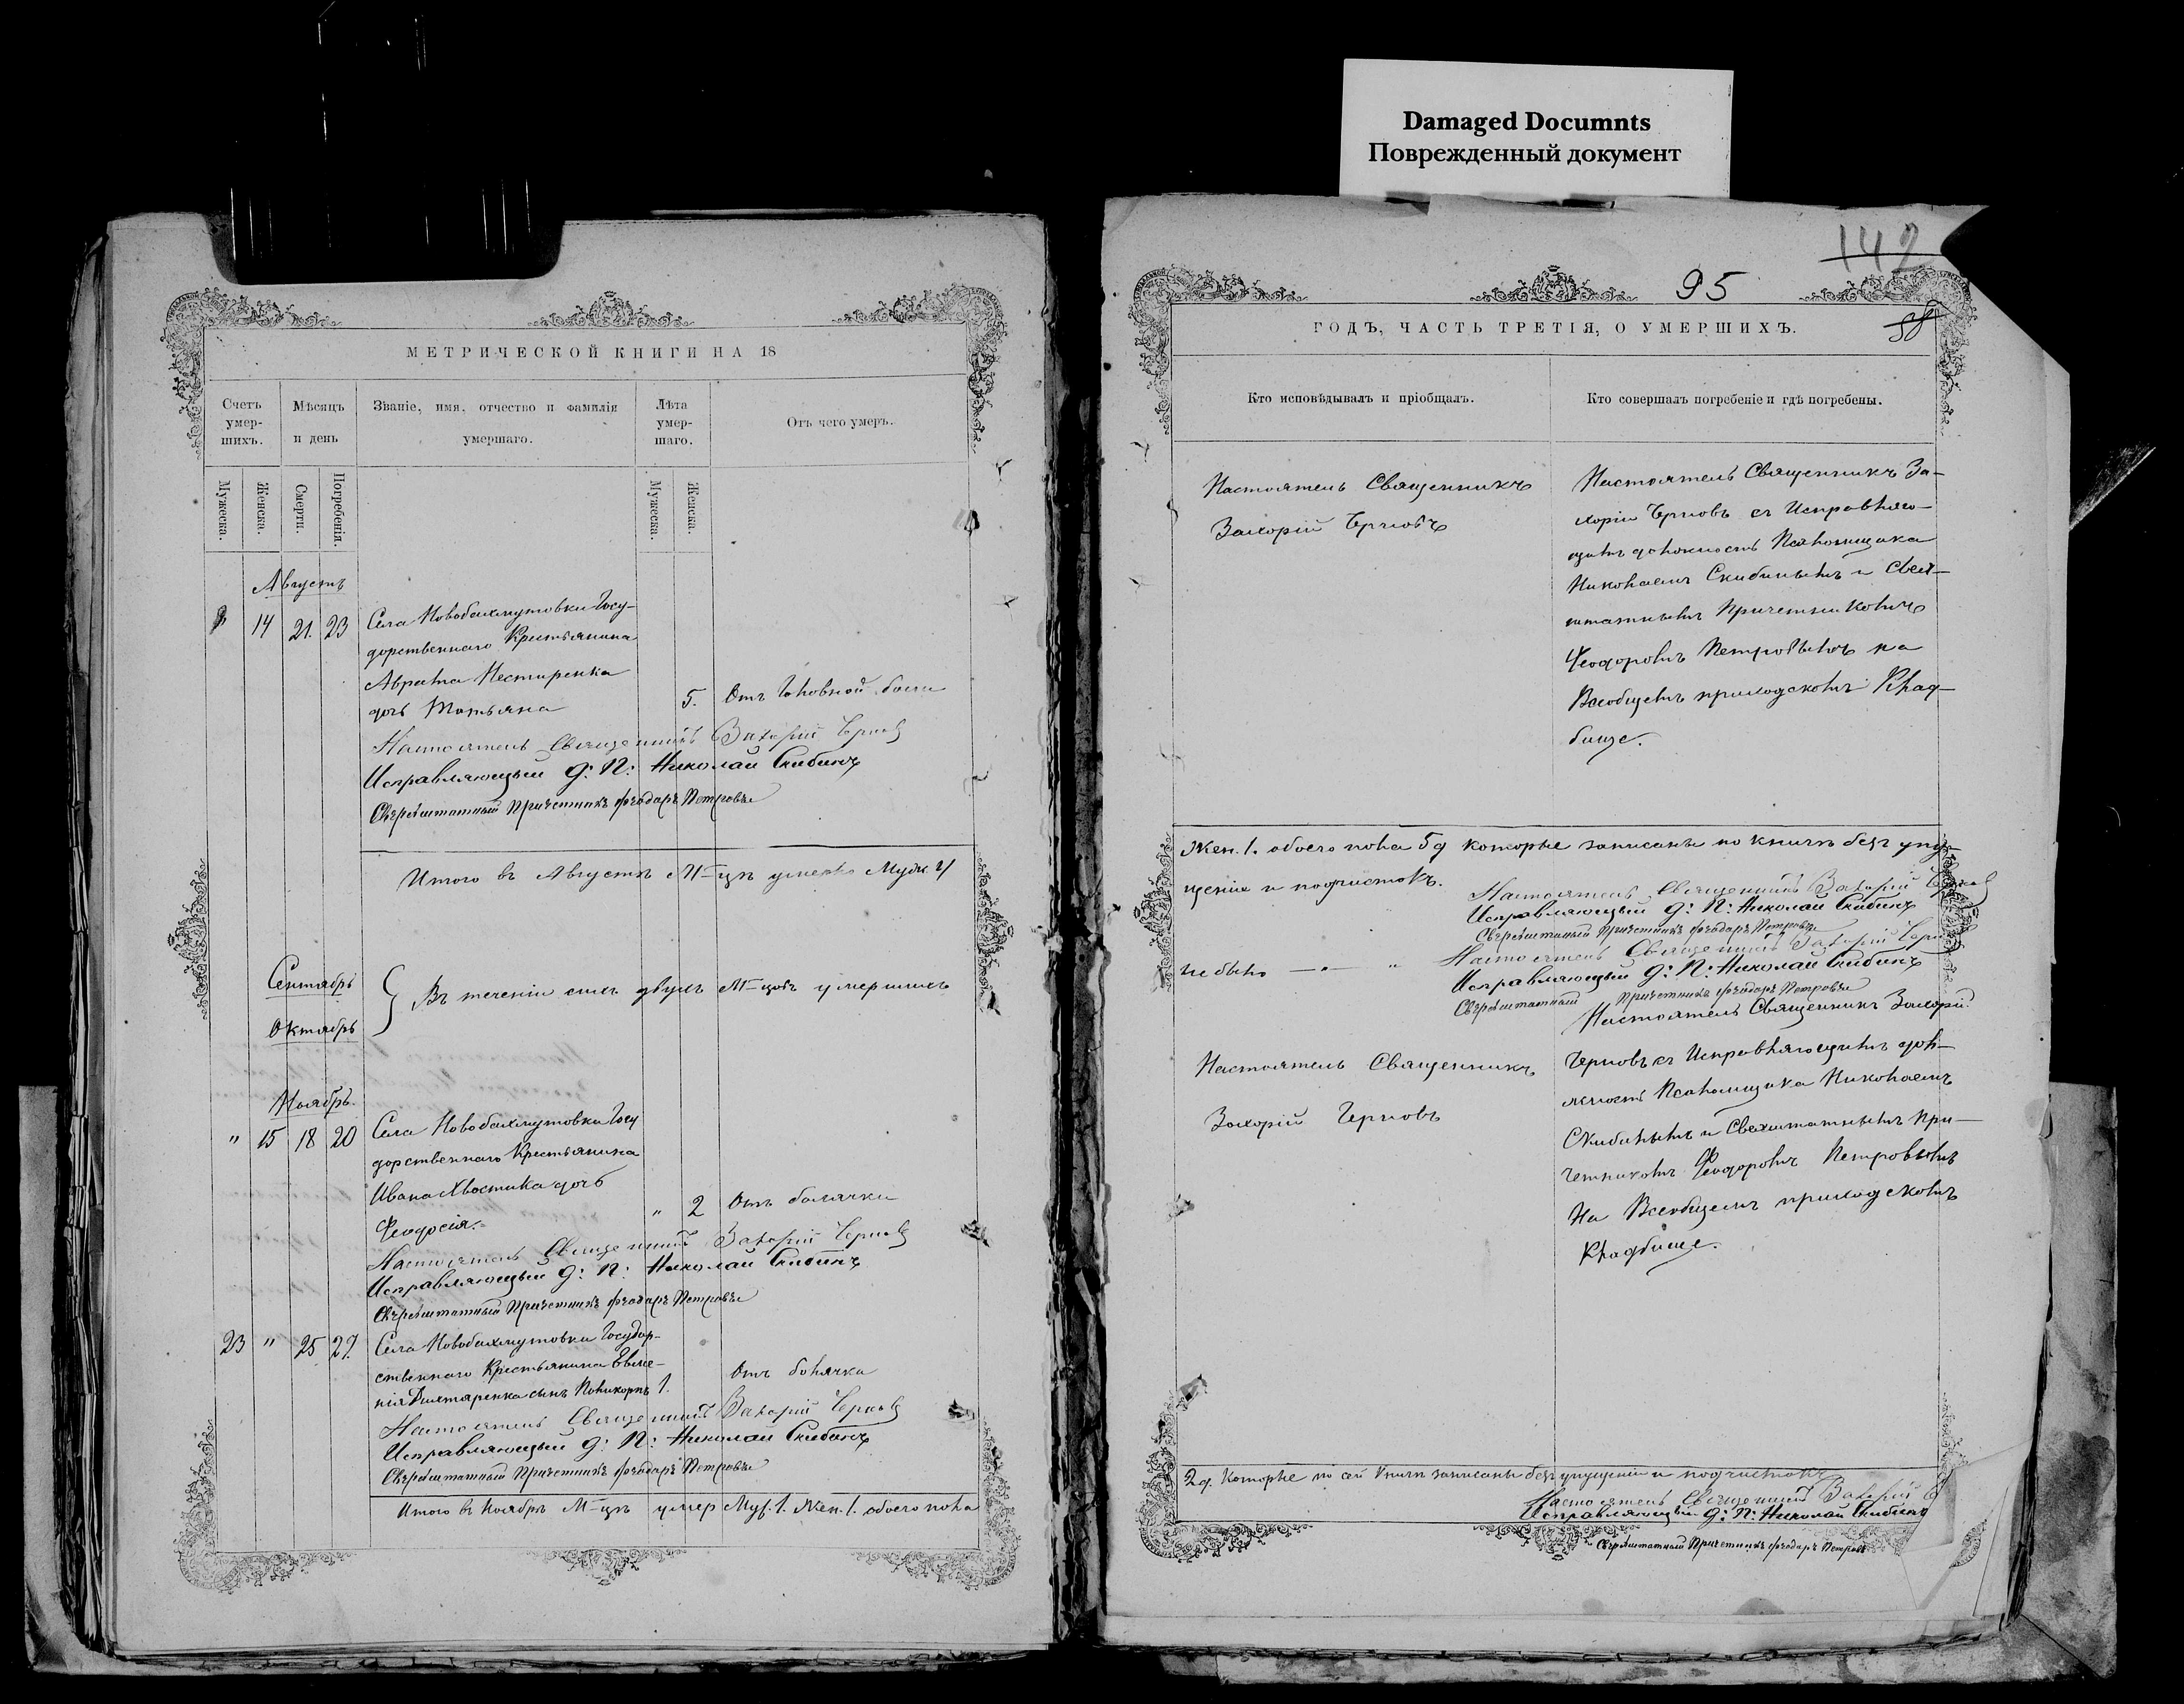 Damaged Documnts
Поврежденный документ
МЕТРИЧЕСКОЙ КНИГИ НА 18
Счетъ умер-шихъ.
Мѣсяцъ и день
Званіе, имя, отчество и фамилія умершаго.
Лѣта умер-шаго.
Отъ чего умеръ.
Мужеска.
Женска.
Смерти.
Погребенія.
Мужеска.
Женска.
Августъ
14 21. 23 Села Новобахмутовки Госу-
дарственнаго Крестьянина
Аврама Нестиренка
дочь Татьяна 5. Отъ головной боли
Настоятель Священникъ Захарій Черновъ
Исправляющій д: П: Николай Скибинъ
Сверхштатный Причетникъ Феодоръ Петровъ
Итого въ Августѣ М-цѣ умерло Муж. 4
Сентябрь
Октябрь
Въ теченіи сихъ двухъ М-цовъ умершихъ
Ноябрь.
" 15 18 20 Села Новобахмутовки Госу
дарственнаго Крестьянина
Ивана Хвостика дочь
Феодосія. " 2 Отъ болячки
Настоятель Священникъ Захарій Черновъ
Исправляющій д: П: Николай Скибинъ
Сверхштатный Причетникъ Феодоръ Петровъ
23 " 25 27. Села Новобахмутовки Государ-
ственнаго Крестьянина Евме-
нія Дихтяренка сынъ Поликарпъ 1. Отъ болячка
Настоятель Священникъ Захарій Черновъ
Исправляющій д: П: Николай Скибинъ
Сверхштатный Причетникъ Феодоръ Петровъ
Итого въ Ноябрѣ М-цѣ умер Муж. 1. Жен. 1. обоего пола
142
95
88
ГОДЪ, ЧАСТЬ ТРЕТІЯ, О УМЕРШИХЪ.
Кто исповѣдывалъ и пріобщалъ.
Кто совершалъ погребеніе и гдѣ погребены.
Настоятель Священникъ
Захорій Черновъ
Настоятель Священникъ За-
хорій Черновъ съ Исправляю-
щимъ должность Псаломщика
Николаемъ Скибинымъ и Свех-
штатнымъ Причетникомъ
Феодоромъ Петровымъ на
Всеобщемъ приходскомъ Клад-
бище.
Жен. 1. обоего пола 5 д которые записаны по книги безъ упу-
щенія и подчистокъ.
Настоятель Священникъ Захарій Черновъ
Исправляющій д: П: Николай Скибинъ
Сверхштатный Причетникъ Феодоръ Петровъ
не было
Настоятель Священникъ Захарій Черновъ
Исправляющій д: П: Николай Скибинъ
Сверхштатный Причетникъ Феодоръ Петровъ
Настоятель Священникъ
Захорій Черновъ
Настоятель Священникъ Захорій
Черновъ съ Исправляющимъ дол-
жность Псаломщика Николаемъ
Скибинымъ и Свехштатнымъ При-
четникомъ Феодоромъ Петровымъ
На Всеобщемъ приходскомъ
Кладбище.
2 д. Которые по сей книги записаны безъ упущеніи и подчистокъ
Настоятель Священникъ Захарій
Исправляющій д: П: Николай Скибинъ
Сверхштатный Причетникъ Феодоръ Петровъ